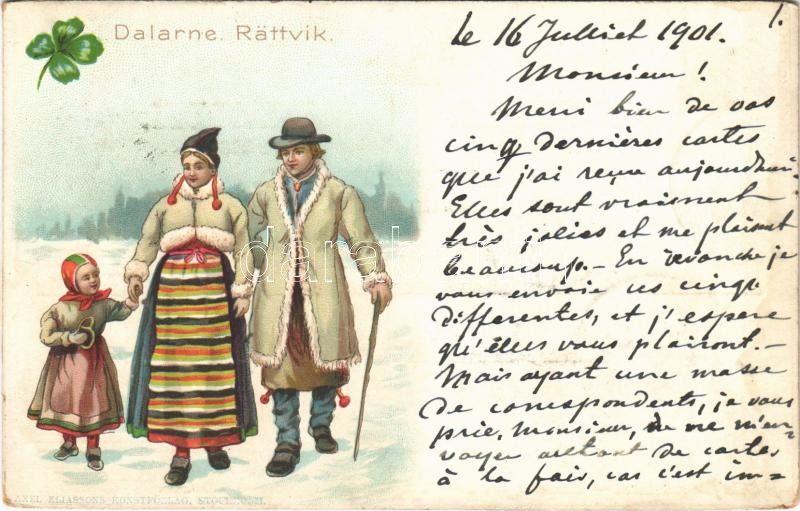 Dalarne. Rättvik.
1.
le 16 Julliet 1901.
Monsieur!
Merci bien de vos
cinq dernières cartes
que j'ai reçue aujourdhui.
Elles sont vraiment
très jolies et me plaisent
beaucoup. – En revanche je
vous envoie ces cinqs
differentes, et j'espere
qu'elles vous plairont. –
Mais ayant une masse
de correspondents, je vous
prie, Monsieur, de ne m'en-
voyer autant de cartes
à la fois, car c'est im-
AXEL ELIASSONS KONSTFÖRLAG, STOCKHOLM.
darabanth